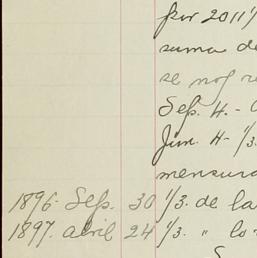 por 2011/
suma de
se nos re
Sep. 4. -
Jun. 4 - 1/3.
mensura
1896. Sep. 30 1/3. de la
1897. abril 24 1/3. " lo